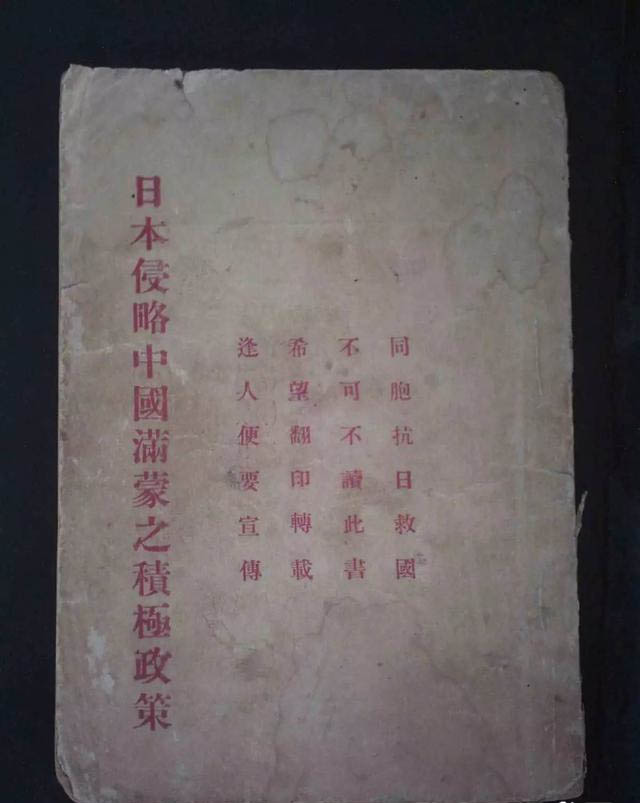 同胞抗日救國
不可不讀此書
希望翻印轉載
逢人便要宣傳
日本侵略中國滿蒙之積極政策